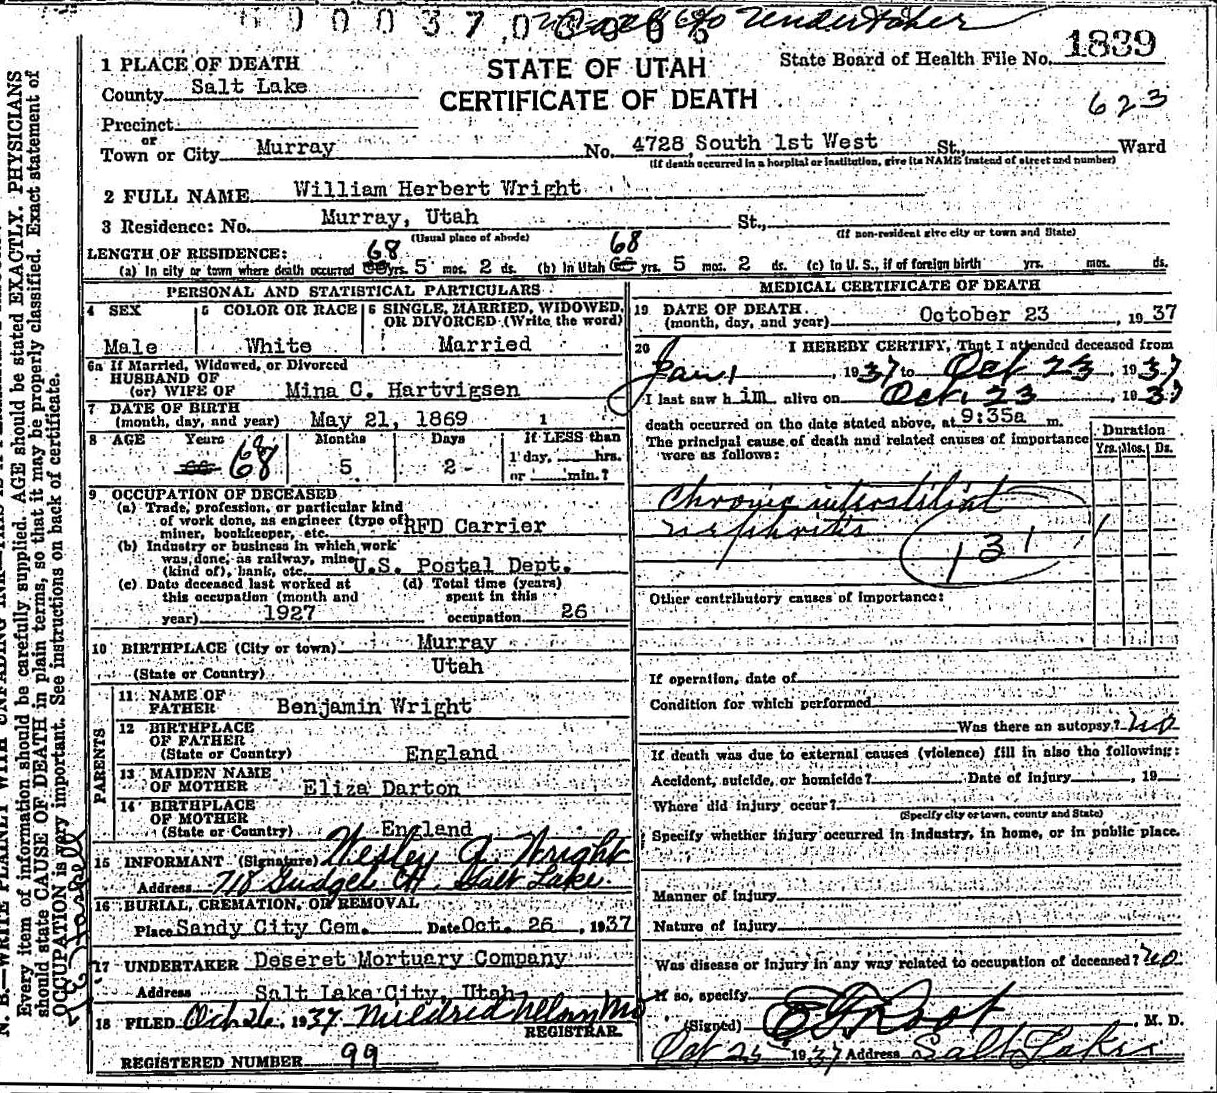 State Board of Health File No. 1839
1 PLACE OF DEATH
STATE OF UTAH
County Salt Lake
CERTIFICATE OF DEATH
623
Precinct
or
Town or City Murray No. 4728 South 1st West St., Ward
(If death occurred in a hospital or institution, give its NAME instead of street and number)
2 FULL NAME William Herbert Wright
3 Residence: No. Murray, Utah St.,
(Usual place of abode) (If non-resident give city or town and State)
LENGTH OF RESIDENCE:
(a) In city or town where death occurred 68 yrs. 5 mos. 2 ds. (b) In Utah 68 yrs. 5 mos. 2 ds. (c) In U. S., if of foreign birth yrs. mos. ds.
PERSONAL AND STATISTICAL PARTICULARS
4 SEX 5 COLOR OR RACE 6 SINGLE, MARRIED, WIDOWED,
OR DIVORCED (Write the word)
Male White Married
6a If Married, Widowed, or Divorced
HUSBAND OF
(or) WIFE OF Mina C. Hartvigsen
7 DATE OF BIRTH
(month, day, and year) May 21, 1869
8 AGE Years Months Days If LESS than
1 day, hrs.
68 5 2 or min.?
9 OCCUPATION OF DECEASED
(a) Trade, profession, or particular kind
of work done, as engineer (type of)
miner, bookkeeper, etc. RFD Carrier
(b) Industry or business in which work
was done, as railway, mine
(kind of), bank, etc. U.S. Postal Dept.
(c) Date deceased last worked at (d) Total time (years)
this occupation (month and spent in this
year) 1927 occupation 26
10 BIRTHPLACE (City or town) Murray
(State or Country) Utah
PARENTS
11 NAME OF
FATHER Benjamin Wright
12 BIRTHPLACE
OF FATHER
(State or Country) England
13 MAIDEN NAME
OF MOTHER Eliza Darton
14 BIRTHPLACE
OF MOTHER
(State or Country) England
15 INFORMANT (Signature) Wesley A. Wright
Address 718 Gudgel Ct. Salt Lake
16 BURIAL, CREMATION, OR REMOVAL
Place Sandy City Cem. Date Oct. 26, 1937
17 UNDERTAKER Deseret Mortuary Company
Address Salt Lake City, Utah
18 FILED Oct 26, 1937
REGISTRAR
REGISTERED NUMBER 99
MEDICAL CERTIFICATE OF DEATH
19 DATE OF DEATH
(month, day, and year) October 23, 1937
20 I HEREBY CERTIFY, That I attended deceased from
Jan 1, 1937 to Oct 23, 1937
I last saw him alive on Oct. 23, 1937
death occurred on the date stated above, at 9:35a m.
The principal cause of death and related causes of importance
were as follows:
Duration
Yrs. Mos. Ds.
Chronic interstitial
nephritis
131
Other contributory causes of importance:
If operation, date of
Condition for which performed
Was there an autopsy? no
If death was due to external causes (violence) fill in also the following:
Accident, suicide, or homicide? Date of injury , 19
Where did injury occur?
(Specify city or town, county and State)
Specify whether injury occurred in industry, in home, or in public place.
Manner of injury
Nature of injury
Was disease or injury in any way related to occupation of deceased? no
If so, specify
(Signed) Root, M. D.
1937 Address Salt Lake
Every item of information should be carefully supplied. AGE should be stated EXACTLY. PHYSICIANS
should state CAUSE OF DEATH in plain terms, so that it may be properly classified. Exact statement of
OCCUPATION is very important. See instructions on back of certificate.